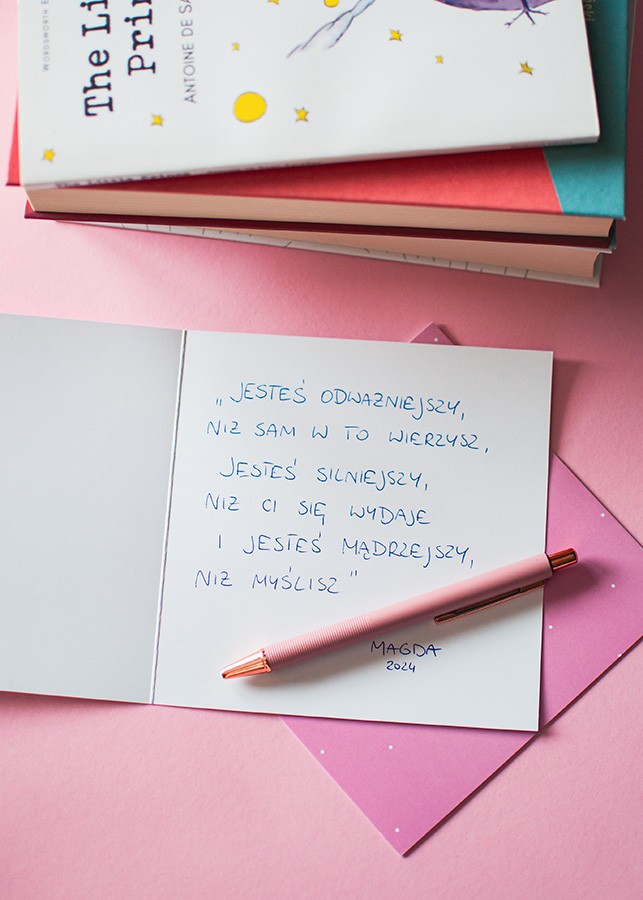 WORDSWORTH
The Li
Prin
ANTOINE DE SA
„JESTEŚ ODWAŻNIEJSZY,
NIŻ SAM W TO WIERZYSZ,
JESTEŚ SILNIEJSZY,
NIŻ CI SIĘ WYDAJE
I JESTEŚ MĄDRZEJSZY,
NIŻ MYŚLISZ"
MAGDA
2024